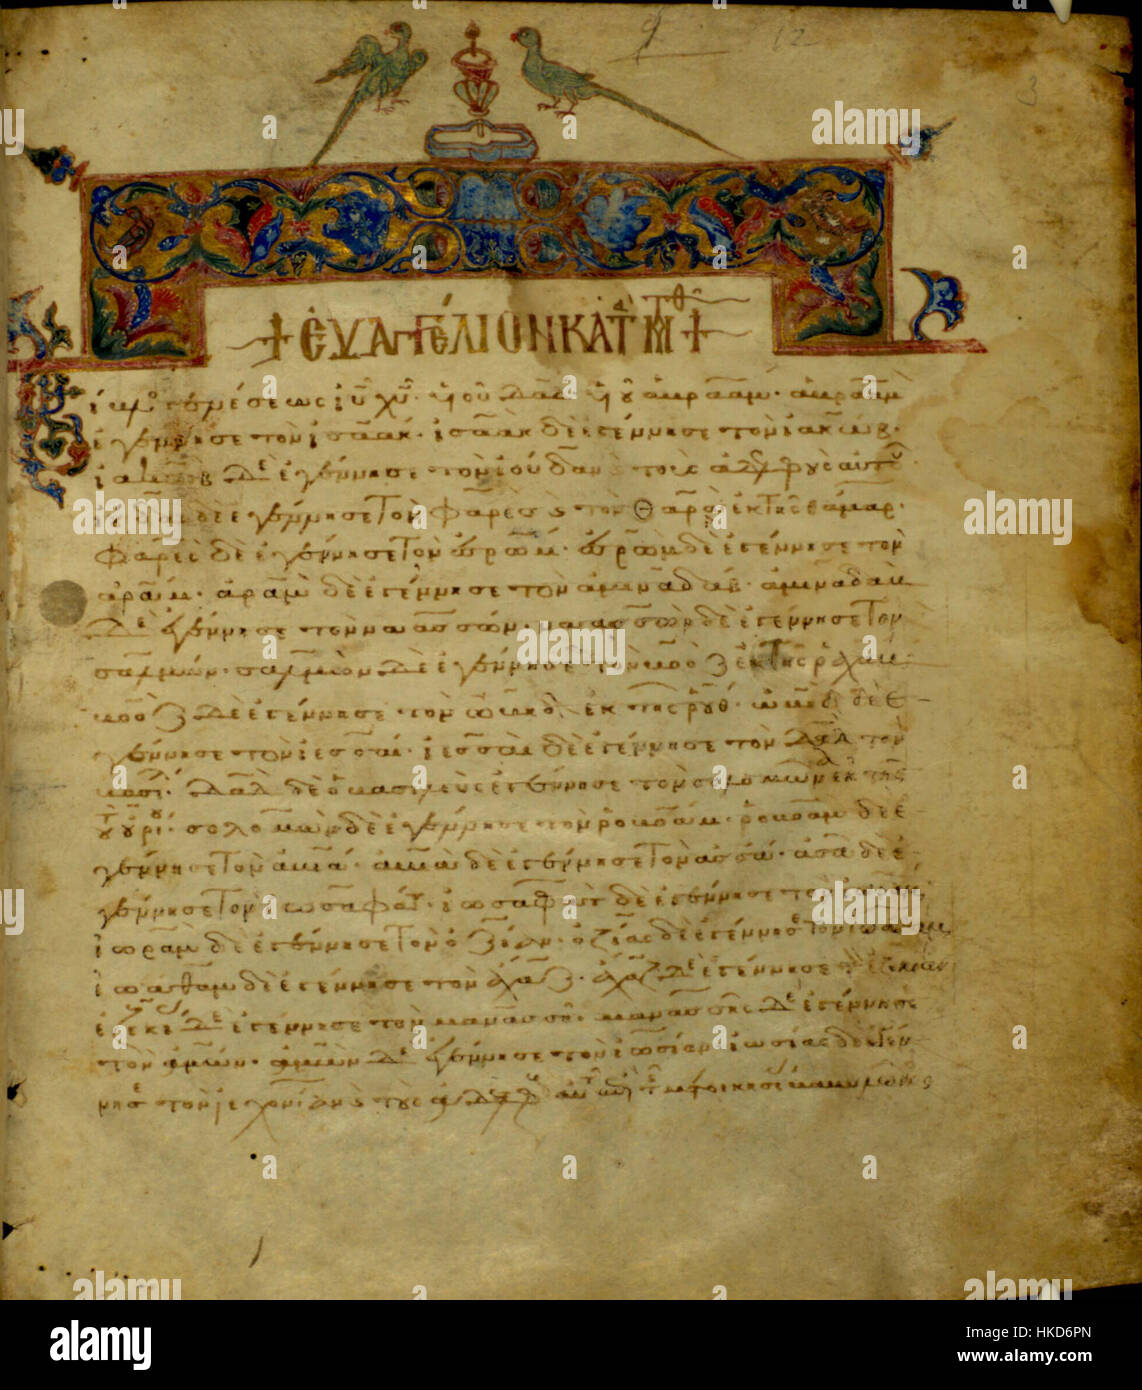 9 12
3
+ ἐυαγγέλιον κατὰ Μτθ +
Βίβλος γενέσεως ἰῦ χῦ· ὑοῦ δᾱδ ὑοῦ ἀβραάμ· ἀβραὰμ
ἐγέννησε τὸν ἰσαάκ· ἰσαὰκ δὲ ἐγέννησε τὸν ἰακώβ·
ἰακὼβ δὲ ἐγέννησε τὸν ἰούδαν καὶ τοὺς ἀδελφοὺς αὐτοῦ·
ἰούδας δὲ ἐγέννησε τὸν φαρὲς καὶ τὸν ζαρὰ ἐκ τῆς θάμαρ·
φαρὲς δὲ ἐγέννησε τὸν ἐσρώμ· ἐσρὼμ δὲ ἐγέννησε τὸν
ἀράμ· ἀρὰμ δὲ ἐγέννησε τὸν ἀμιναδάβ· ἀμιναδὰβ
δὲ ἐγέννησε τὸν ναασσών· ναασσὼν δὲ ἐγέννησε τὸν
σαλμών· σαλμὼν δὲ ἐγέννησε τὸν βοὸζ ἐκ τῆς ῥαχάβ·
βοὸζ δὲ ἐγέννησε τὸν ὠβὴδ ἐκ τῆς ῥούθ· ὠβὴδ δὲ ἐ
γέννησε τὸν ἰεσσαί· ἰεσσαὶ δὲ ἐγέννησε τὸν δᾱδ τὸν
βασιλέα· δᾱδ δὲ ὁ βασιλεὺς ἐγέννησε τὸν σολομῶνα ἐκ τῆς
τοῦ οὐρίου· σολομὼν δὲ ἐγέννησε τὸν ῥοβοάμ· ῥοβοὰμ δὲ ἐ
γέννησε τὸν ἀβιά· ἀβιὰ δὲ ἐγέννησε τὸν ἀσά· ἀσὰ δὲ ἐ
γέννησε τὸν ἰωσαφάτ· ἰωσαφὰτ δὲ ἐγέννησε τὸν ἰωράμ·
ἰωρὰμ δὲ ἐγέννησε τὸν ὀζίαν· ὀζίας δὲ ἐγέννησε τὸν ἰωάθαμ·
ἰωάθαμ δὲ ἐγέννησε τὸν ἄχαζ· ἄχαζ δὲ ἐγέννησε τὸν ἐζεκίαν·
ἐζεκίας δὲ ἐγέννησε τὸν μανασσῆ· μανασσῆς δὲ ἐγέννησε
τὸν ἀμών· ἀμὼν δὲ ἐγέννησε τὸν ἰωσίαν· ἰωσίας δὲ ἐγέν
νησε τὸν ἰεχονίαν καὶ τοὺς ἀδελφοὺς αὐτοῦ ἐπὶ τῆς μετοικεσίας βαβυλῶνος
alamy
a
alamy
Image ID: HKD6PN
www.alamy.com